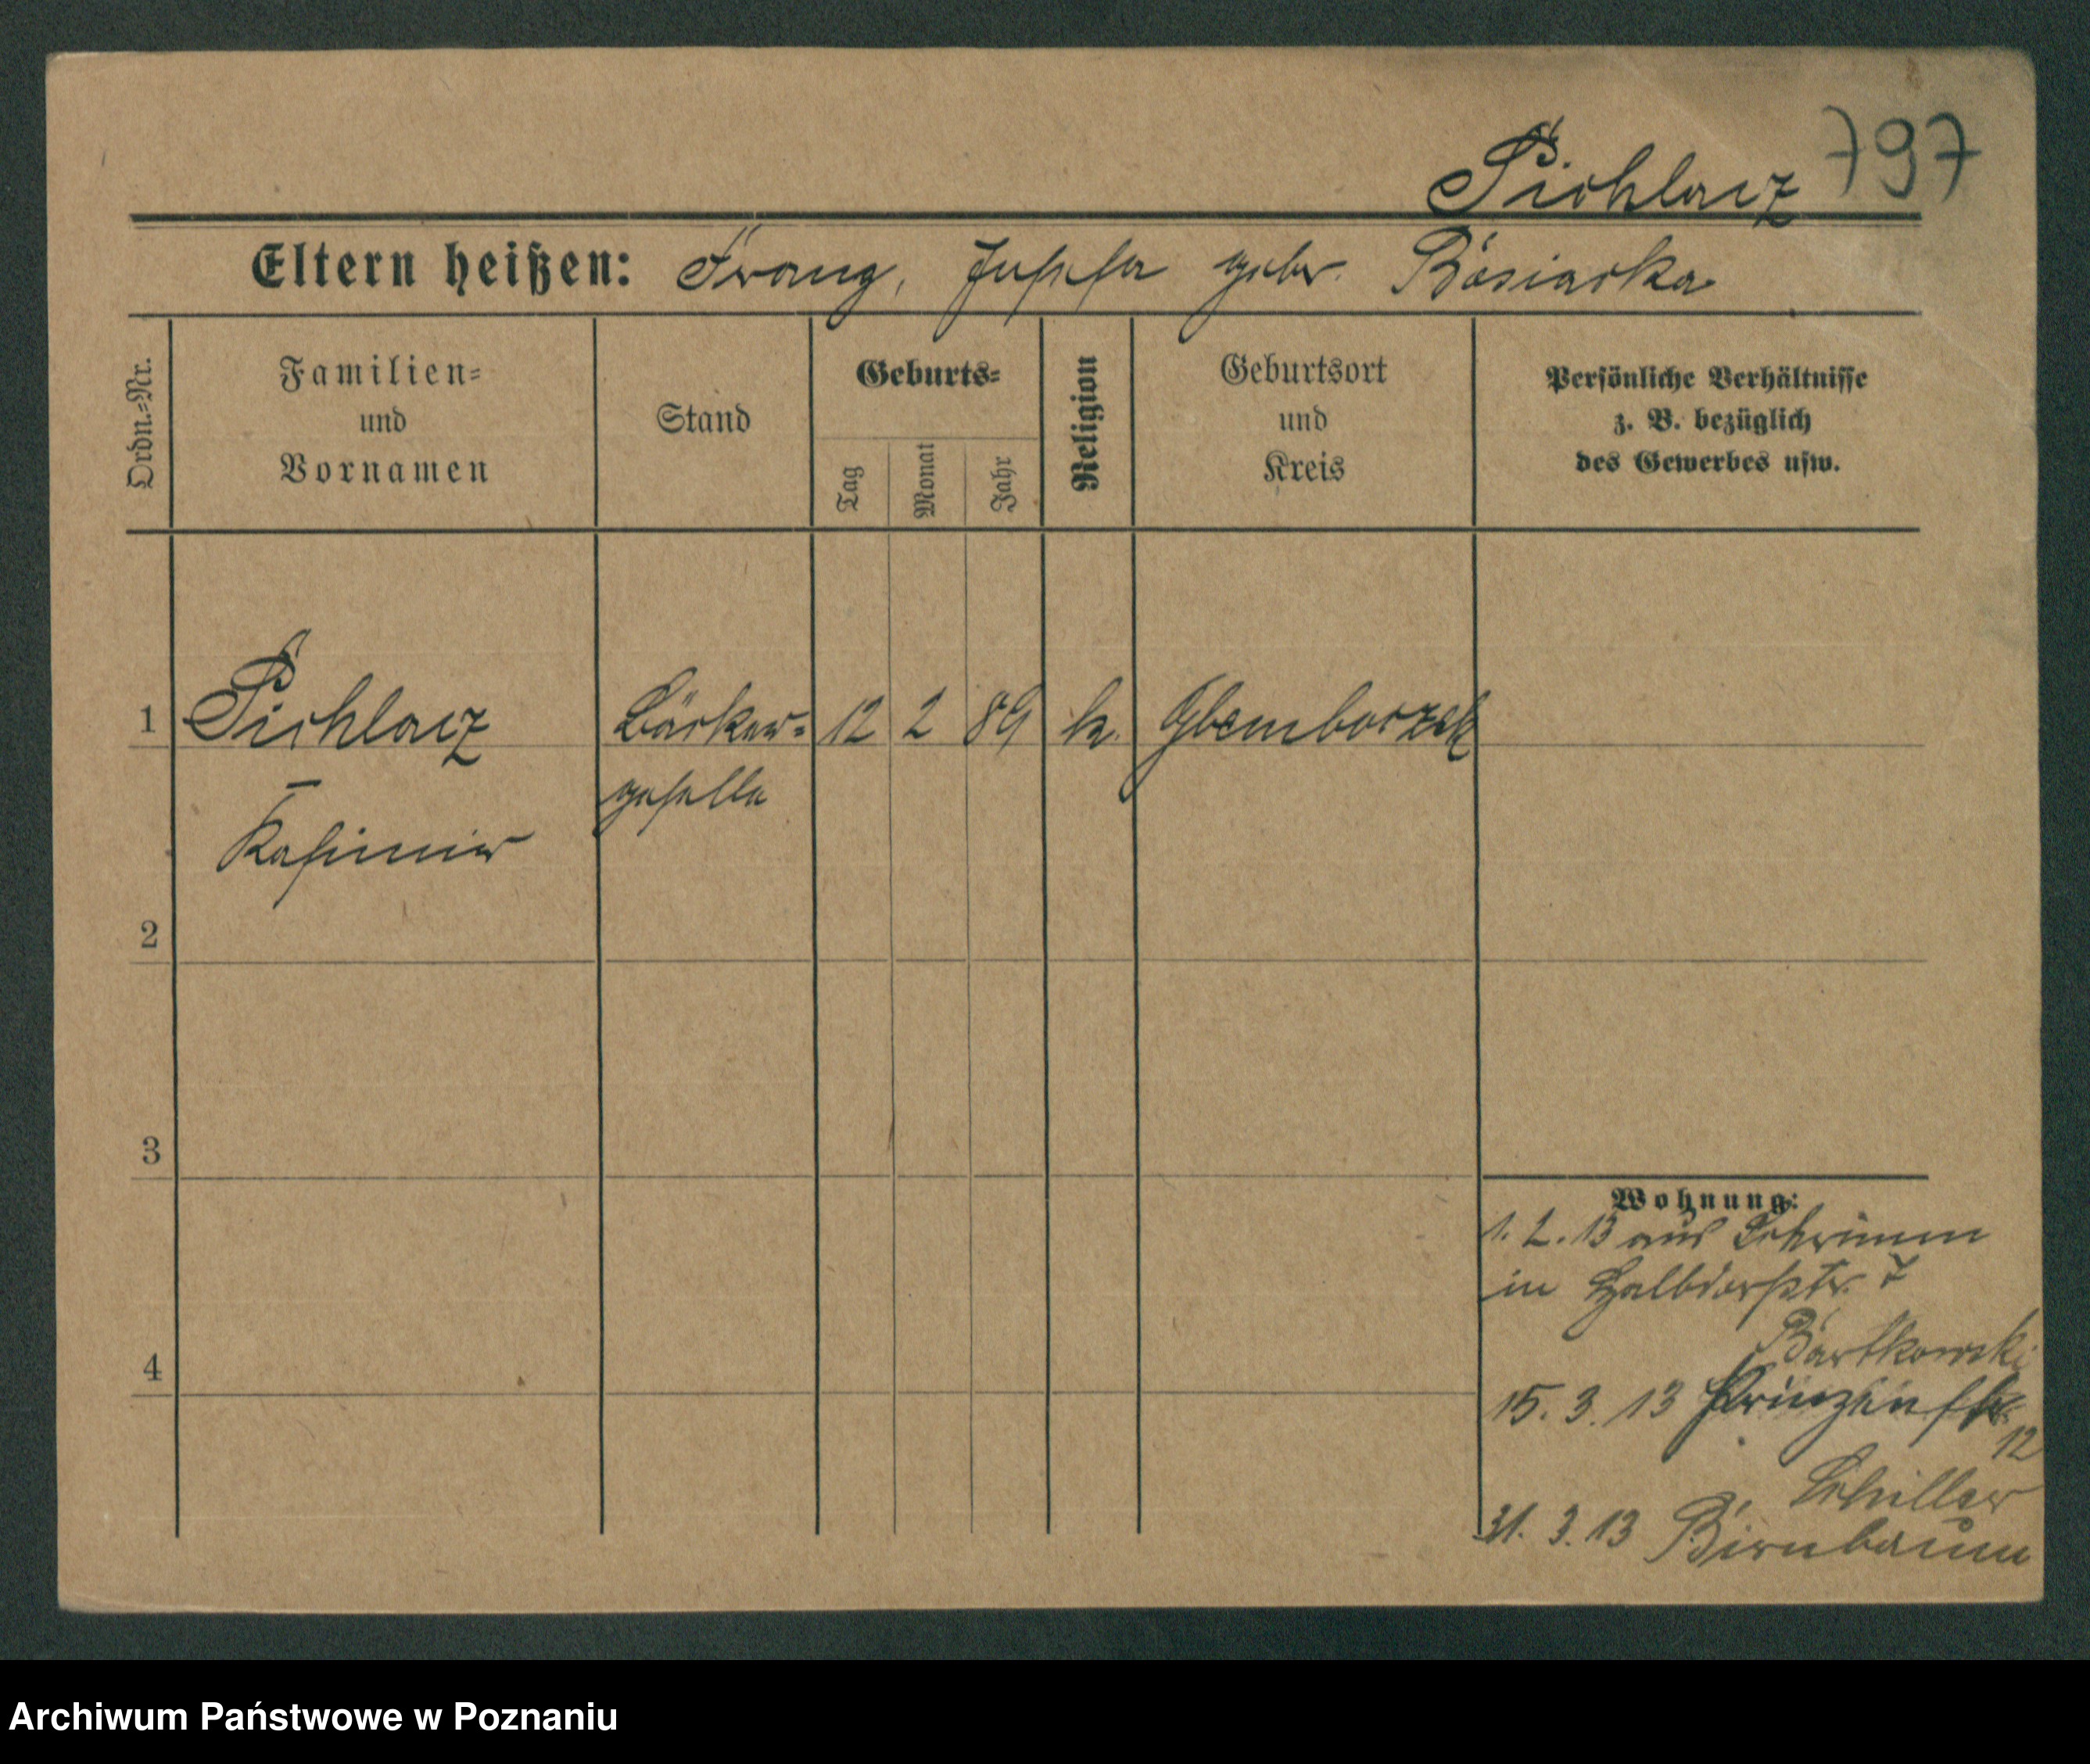 797
Pichlarz
Eltern heißen: Franz, Josefa geb. Bosiacka
Ordn.-Nr.
Familien-
und
Vornamen
Stand
Geburts-
Tag
Monat
Jahr
Religion
Geburtsort
und
Kreis
Persönliche Verhältnisse
z. B. bezüglich
des Gewerbes usw.
1
Pichlarz
Kasimir
Bäcker-
geselle
12 2 89 k.
2
3
4
Wohnung:
1. 2. 13 aus Schrimm
in Halbdorfstr. 7
Bartkowski
15. 3. 13 Prinzenstr.
12
Schiller
31. 3. 13 Birnbaum
Archiwum Państwowe w Poznaniu